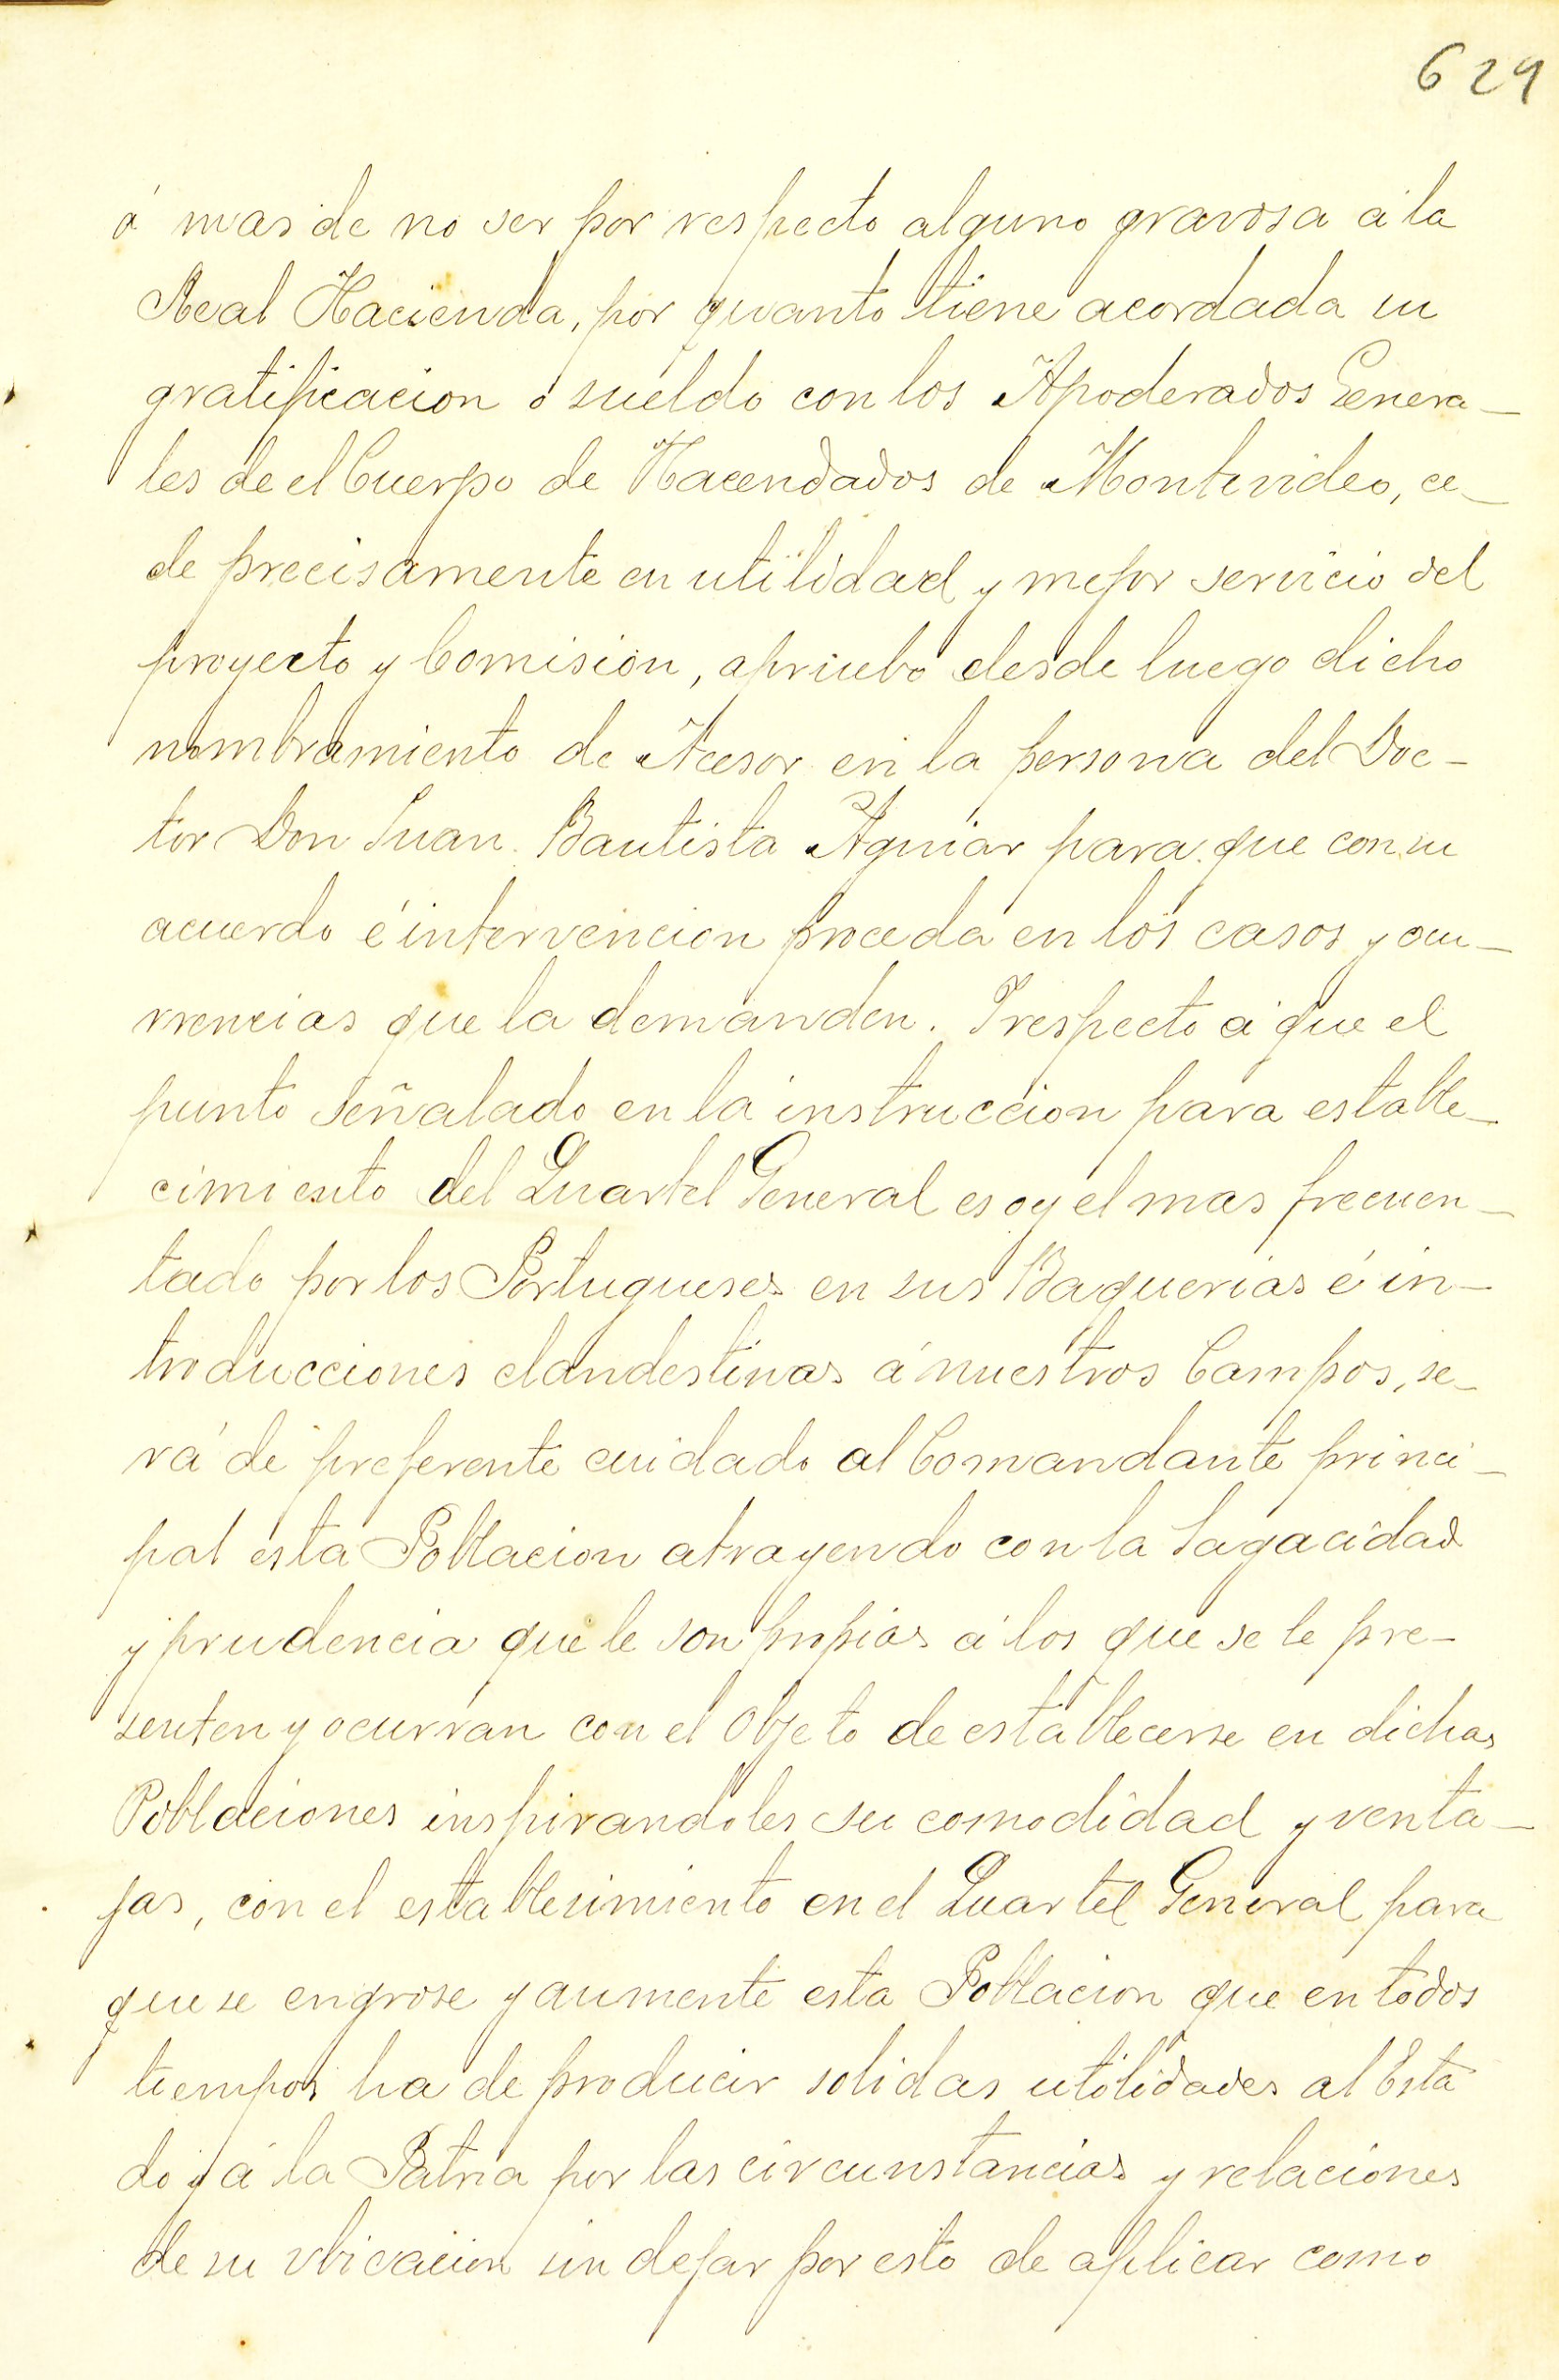 629
á mas de no ser por respecto alguno gravosa á la
Real Hacienda, por quanto tiene acordada su
gratificacion ó sueldo con los Apoderados Genera-
les de el Cuerpo de Hacendados de Montevideo, ce-
de precisamente en utilidad y mejor servicio del
proyecto y Comision, apruebo desde luego dicho
nombramiento de Acesor en la persona del Doc-
tor Don Juan Bautista Aguiar para que con su
acuerdo é intervencion proceda en los casos y ocu-
rrencias que la demanden. Y respecto á que el
punto señalado en la instruccion para estable-
cimiento del Quartel General es oy el mas frecuen-
tado por los Portugueses en sus Baquerias é in-
troducciones clandestinas á nuestros Campos, se-
rá de preferente cuidado al Comandante princi-
pal esta Poblacion atrayendo con la Sagacidad
y prudencia que le son propias á los que se le pre-
senten y ocurran con el Objeto de establecerse en dichas
Poblaciones inspirandoles su comodidad y venta-
jas, con el establesimiento en el Quartel General para
que se engrose y aumente esta Poblacion que en todos
tiempos ha de producir solidas utilidades al Esta
do y á la Patria por las circunstancias y relaciones
de su vbicacion sin dejar por esto de aplicar como